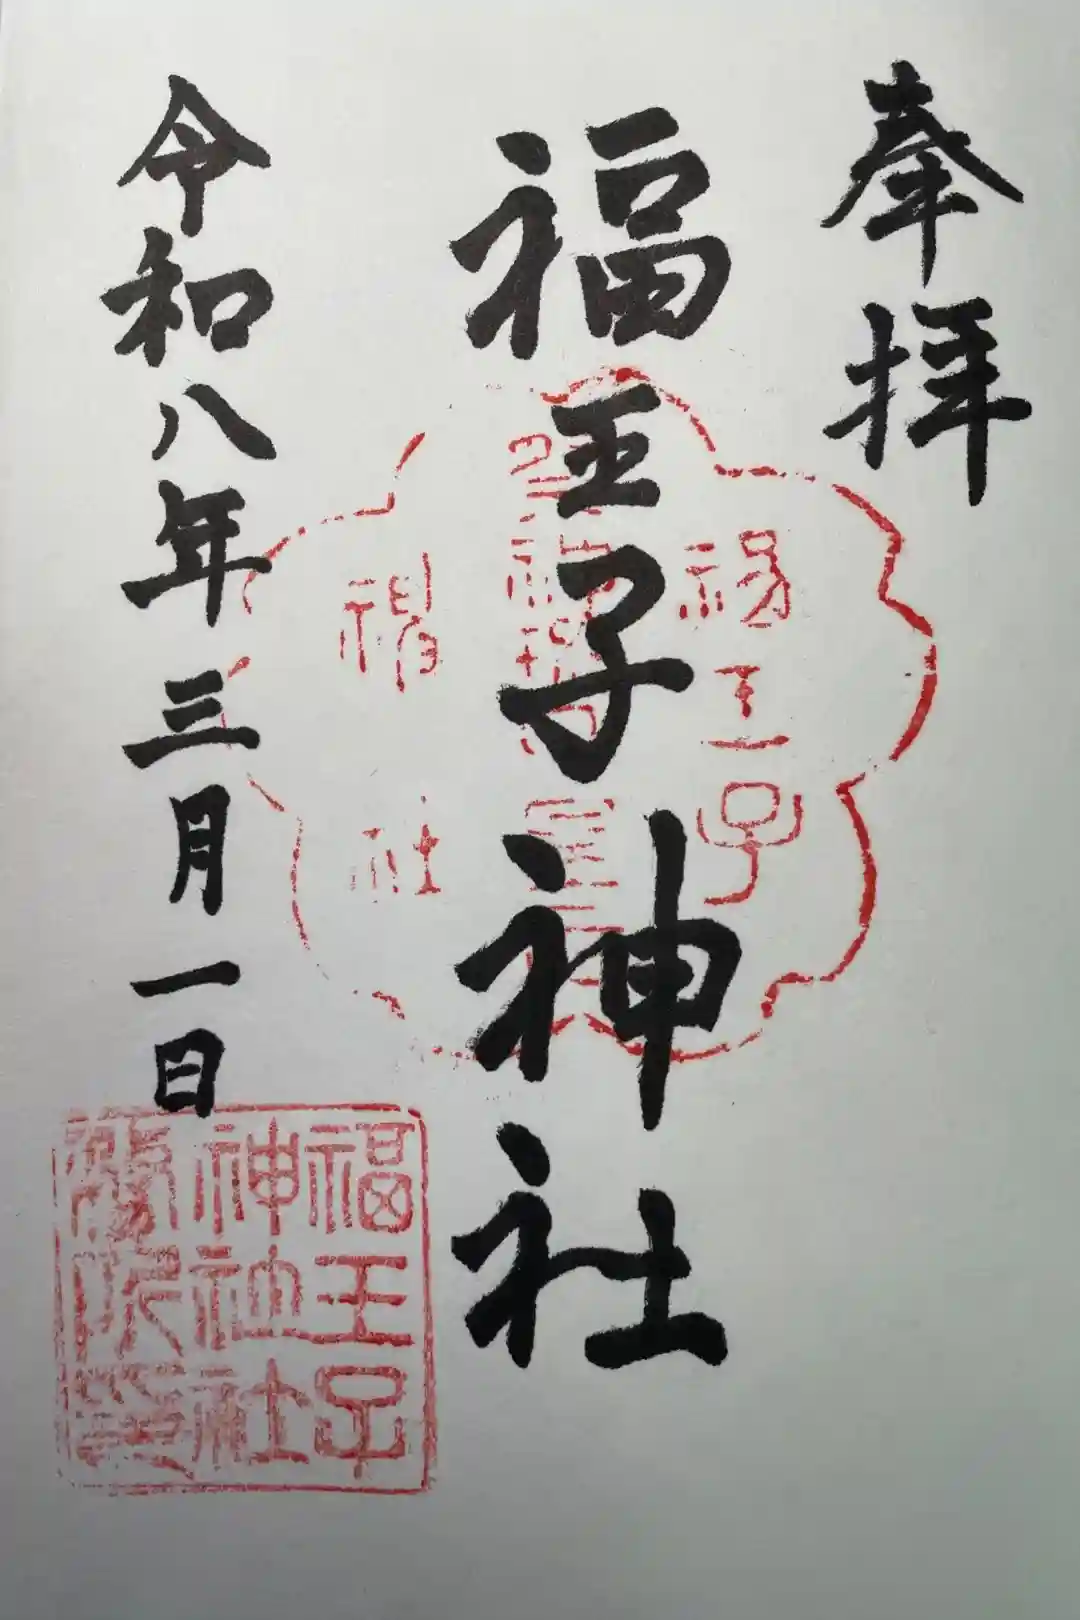 奉拝
福王子神社
令和八年三月一日
福王子
神社
福王子
神社